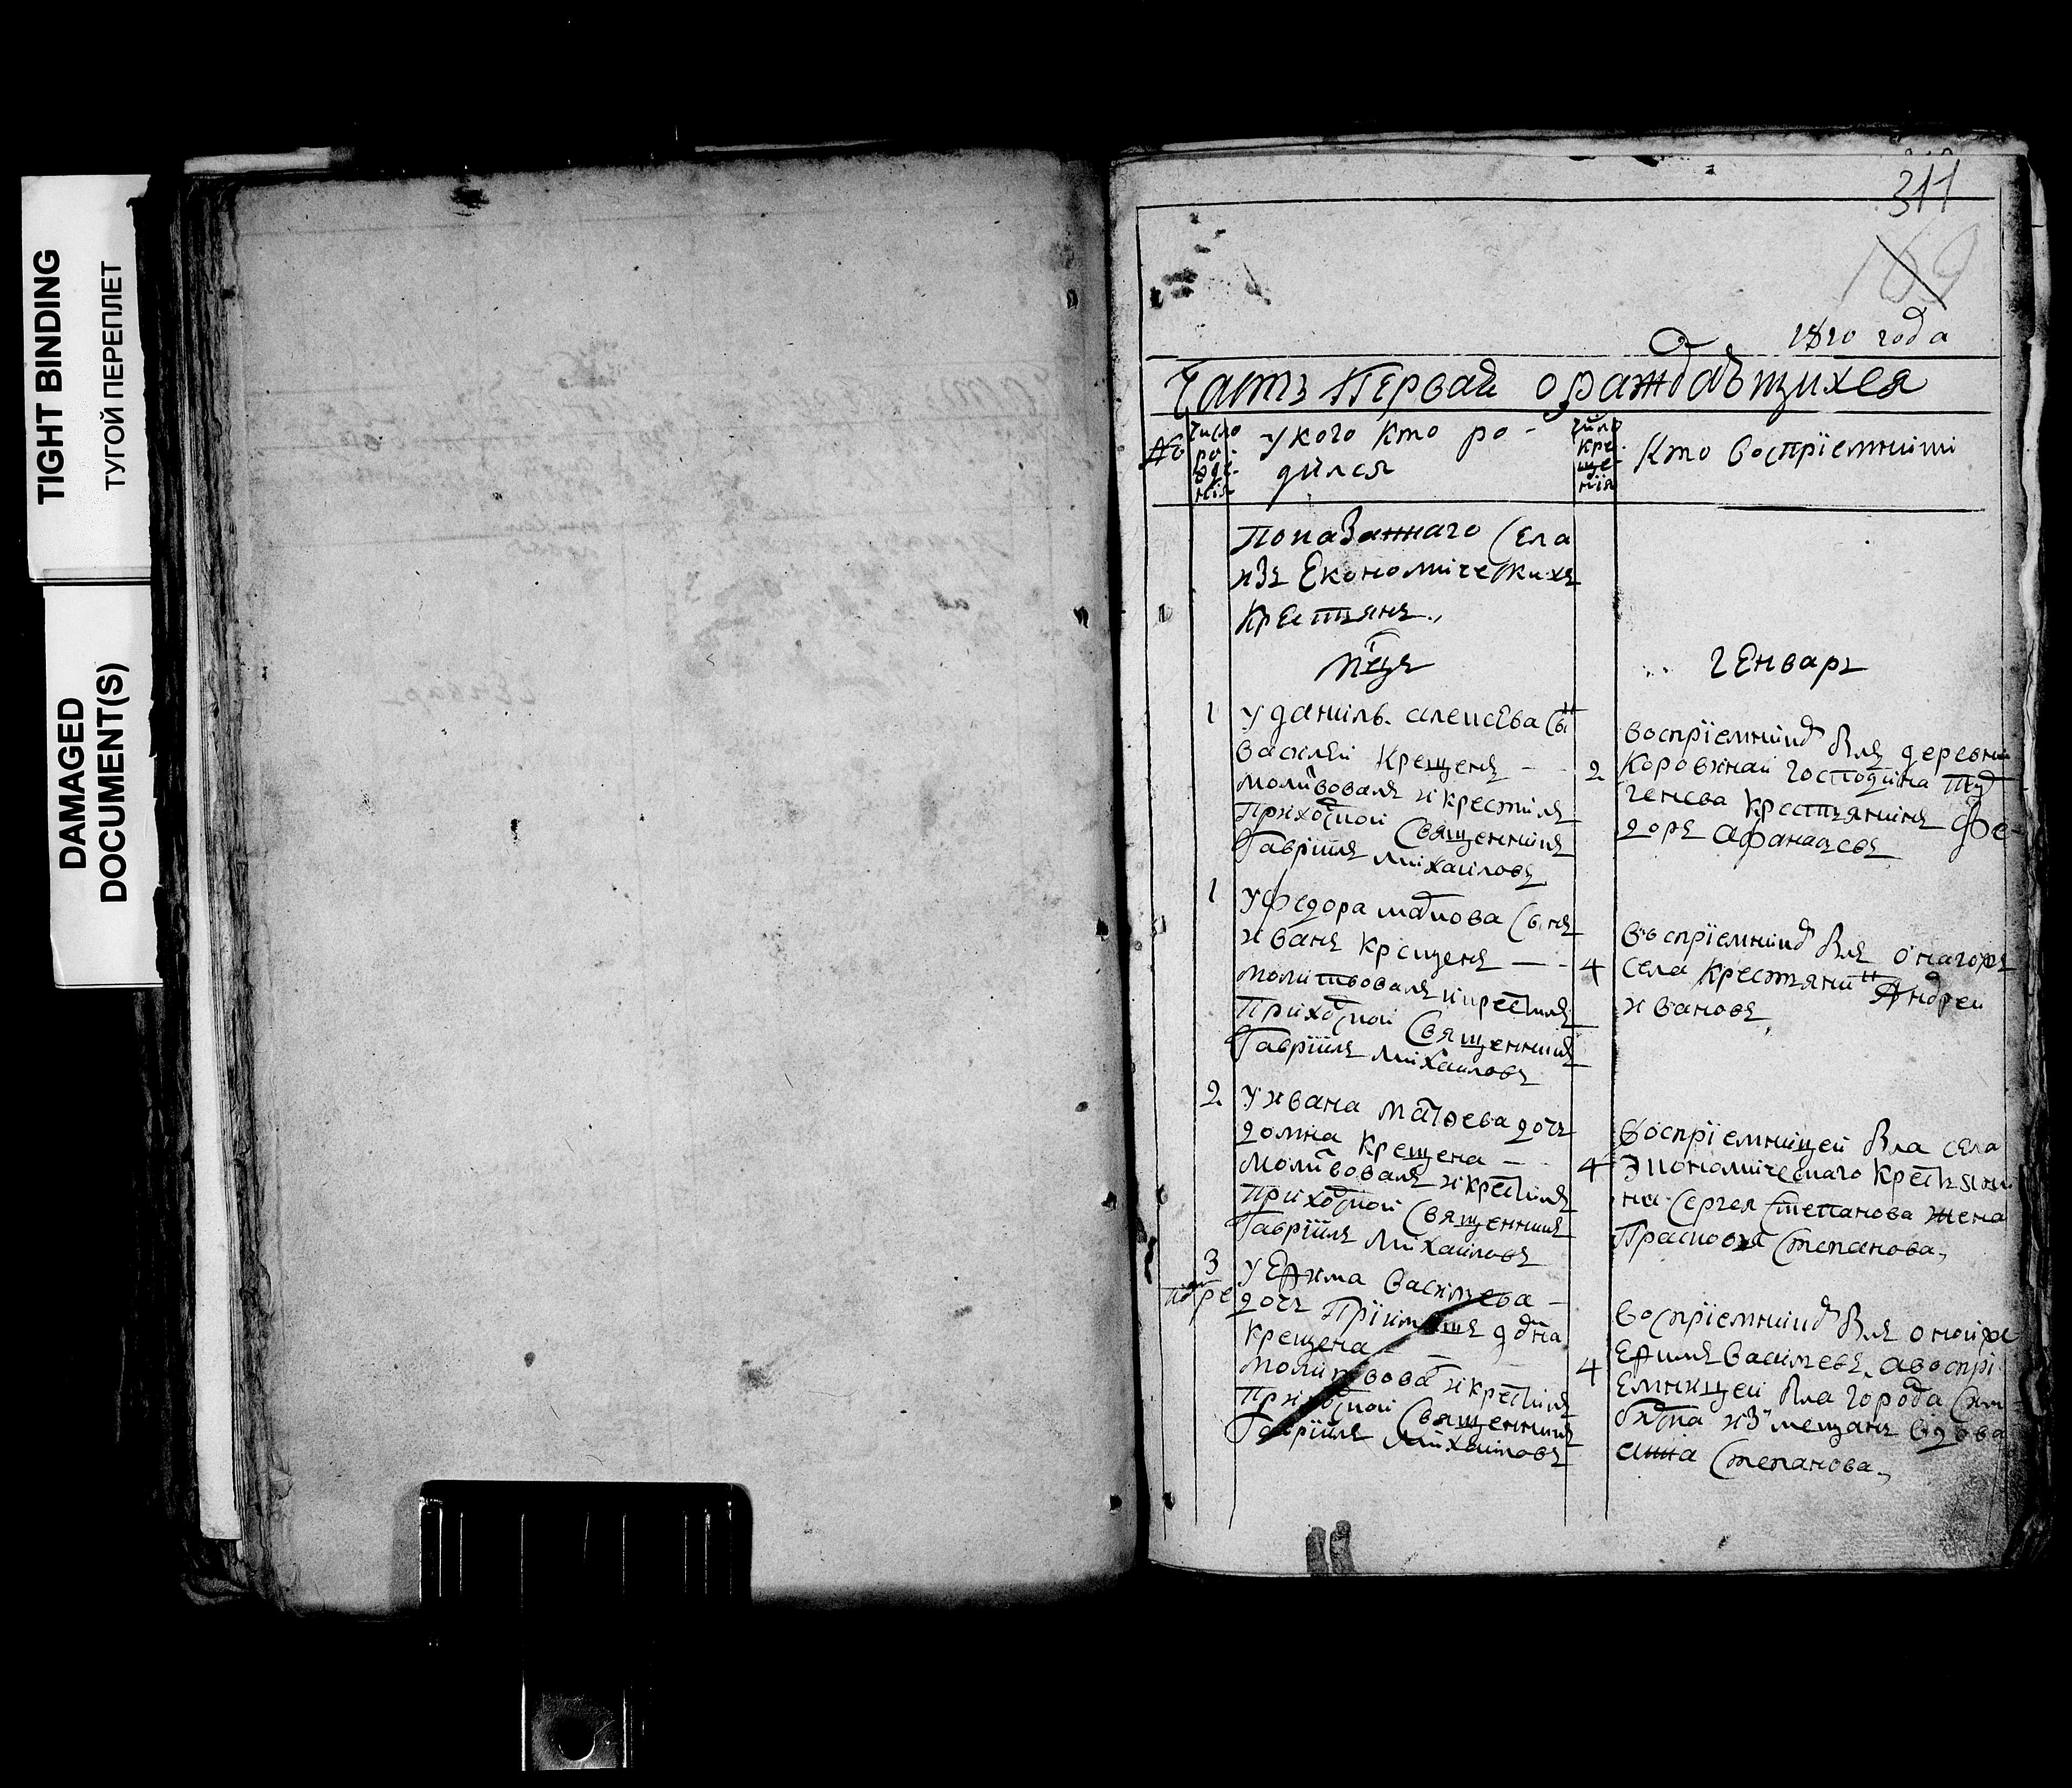 TIGHT BINDING
ТУГОЙ ПЕРЕПЛЕТ
DAMAGED
DOCUMENT(S)
311
169
1810 года
Часть Первая о раждающихся
№
число
ро-
жде-
нія
у кого кто ро-
дился
число
кре-
ще-
нія
Кто воспріемники
Показаннаго Села
изъ Економическихъ
Крестьянъ.,
мцъ
Генварь
1
У данилы алексева сынъ
василей Крещенъ - -
молитвовалъ и крестилъ
Приходской Священникъ
Гавріилъ михаиловъ
2
воспріемникомъ былъ деревни
Коровкнай господина Тур
генева крестьянинъ Фе-
доръ афанасевъ
1
У федора маркова сынъ
иванъ крещенъ - - -
молитвовалъ и крестилъ
Приходской Священникъ
Гавріилъ михаиловъ
4
воспріемникомъ былъ онагожъ
села крестянинъ Андреи
ивановъ
2
У ивана матфева дочь
домна Крещена - -
молитвовалъ и крестилъ
Приходской Священникъ
Гавріилъ михаиловъ
4
воспріемницей была села
Экономическаго крестьяни
на Сергея Степанова жена
Прасковья Степанова,
3
У Ефима васильева -
дочь
крещена - - -
молитвовалъ и крестилъ
Приходской Священникъ
Гавріилъ михаиловъ
4
воспріемникомъ былъ
Ефимъ васильевъ, а воспрі-
емницей была города Сим-
бирска изъ мещанъ вдова
анна Степанова,